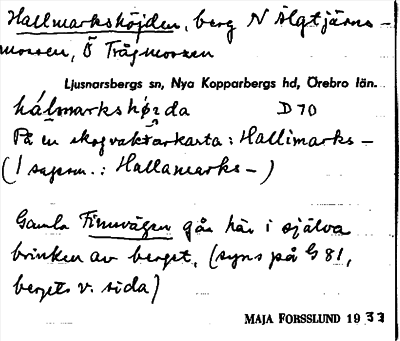 Hallmarkshöjden, berg N Älgtjärns-
mossen, Ö Trågmossen
Ljusnarsbergs sn, Nya Kopparbergs hd, Örebro län.
hálmarkshø̜da D 70
På en skogvaktarkarta: Hallimarks-
(I sägnen.: Hallamarks-)
Gamla Finnvägen går här i själva
brinken av berget, (syns på G 81,
bergets v. sida)
MAJA FORSSLUND 19 33